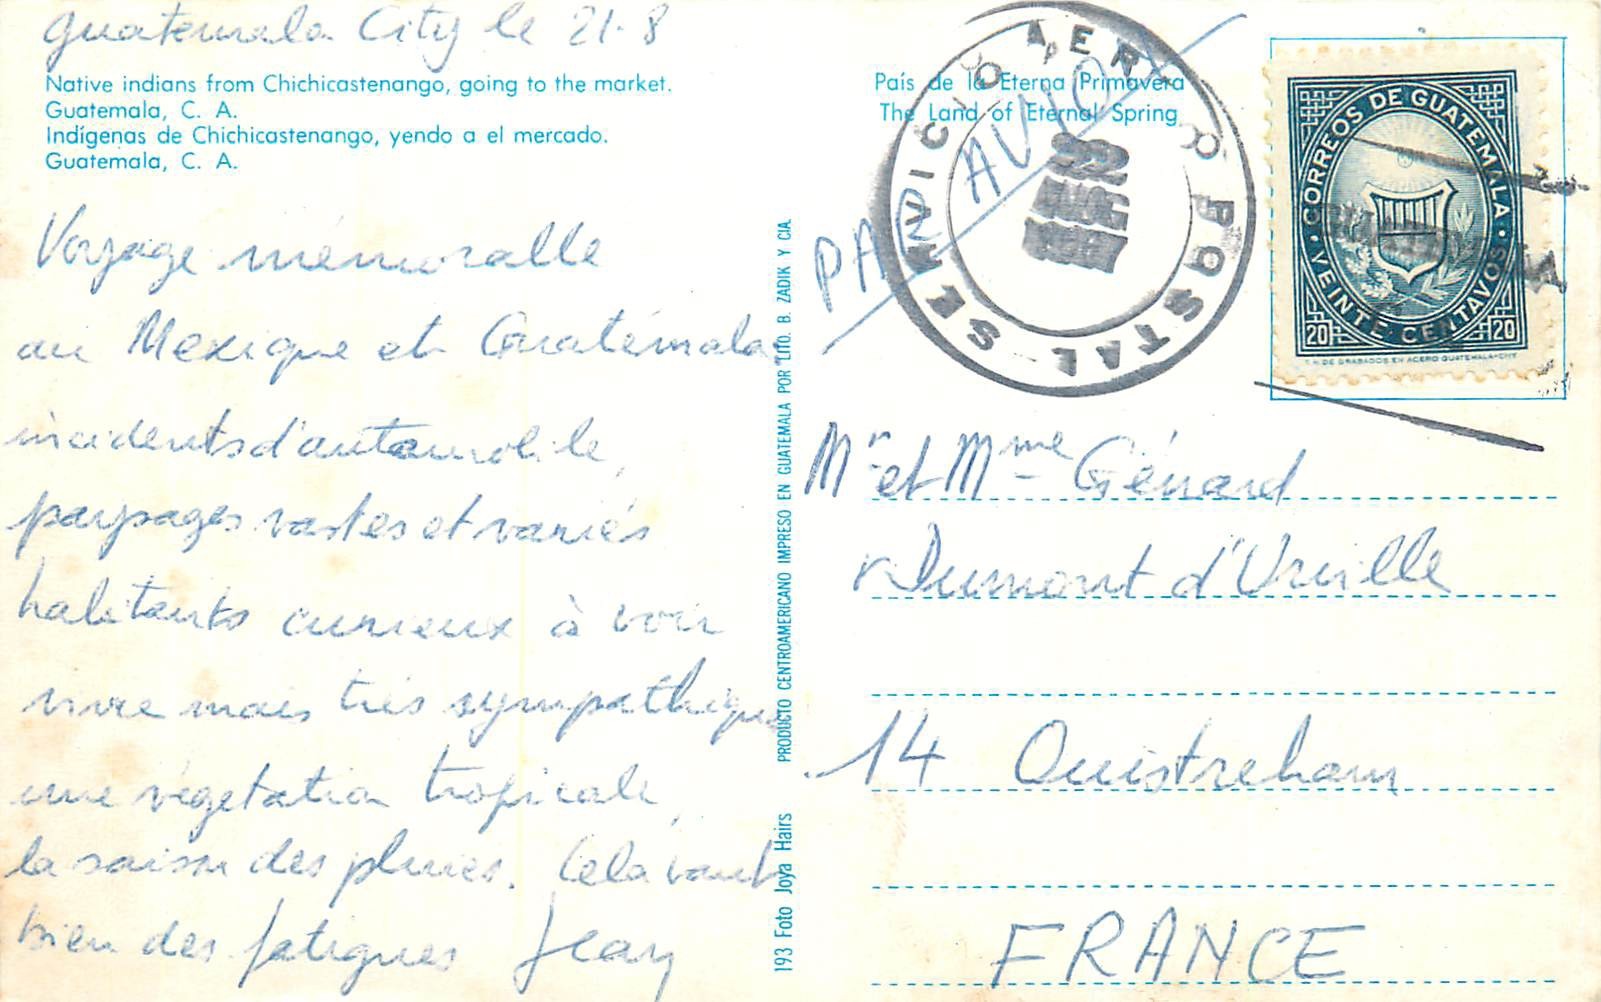 Guatemala City le 21-8
Native indians from Chichicastenango, going to the market.
Guatemala, C. A.
Indígenas de Chichicastenango, yendo a el mercado.
Guatemala, C. A.
Voyage mémorable
au Mexique et Guatémala
incidents d'automobile,
paysages vastes et variés
habitants curieux à voir
vivre mais très sympathiques
une végétation tropicale,
la saison des pluies. Cela vaut
bien des fatigues Jean
193 Foto Joya Hairs PRODUCTO CENTROAMERICANO IMPRESO EN GUATEMALA POR LITO. B. ZADIK Y CIA.
País de la Eterna Primavera
The Land of Eternal Spring
PAR AVION
SERVICIO AEREO POSTAL
22
CORREOS DE GUATEMALA
VEINTE CENTAVOS
20 20
Mr et Mme Génard
r Dumont d'Urville
14 Ouistreham
FRANCE